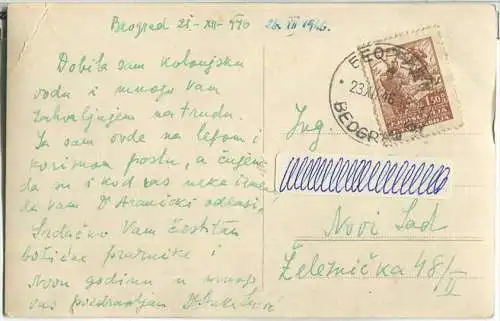 Beograd 21-XII-946
26 XII 1946.
Dobila sam kolonjsku
vodu i mnogo Vam
zahvaljujem na trudu.
Ja sam ovde na lepom i
korisnom poslu, a čujem
da su i kod vas neke
da Vam Dr Aranicki odlazi,
Srdačno Vam čestitam
božićne praznike i
Novu godinu i mnogo
vas pozdravljam Dr
BEOGRAD
23.XII.46
1.50
Ing.
Novi Sad
Železnička 48/II